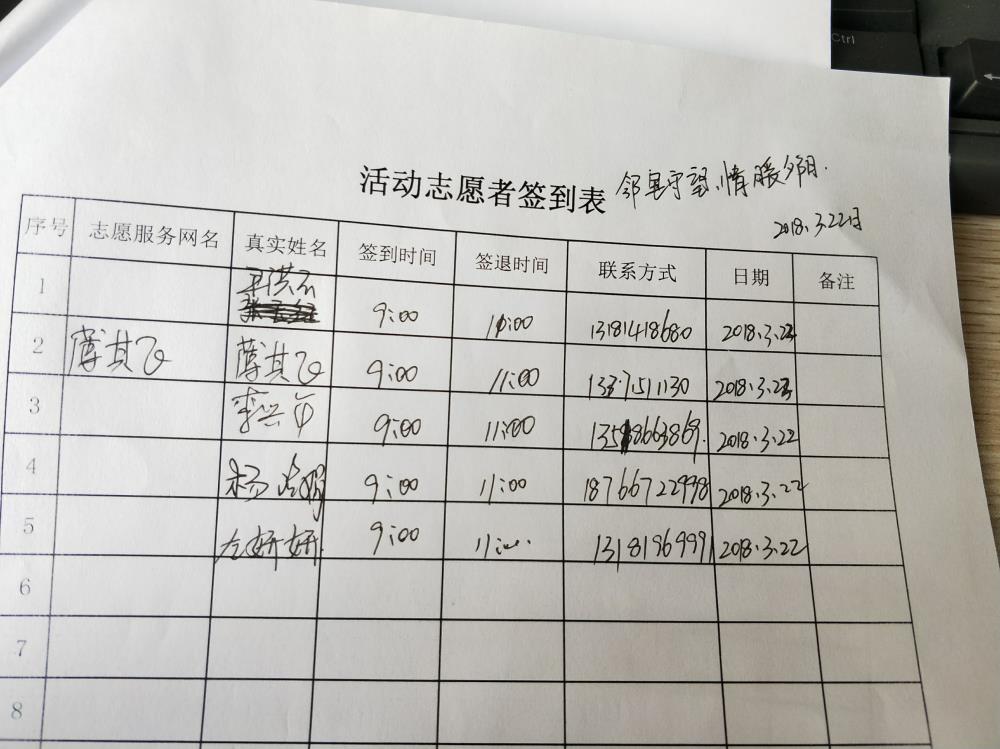 Ctrl
活动志愿者签到表 邻里守望,情暖夕阳.
2018.3.22日
序号 志愿服务网名 真实姓名 签到时间 签退时间 联系方式 日期 备注
1 9:00 11:00 13181418680 2018.3.22
2 薄其飞 薄其飞 9:00 11:00 2018.3.22
3 9:00 11:00 2018.3.22
4 9:00 11:00 18766722998 2018.3.22
5 左妍妍 9:00 11:00 2018.3.22
6
7
8